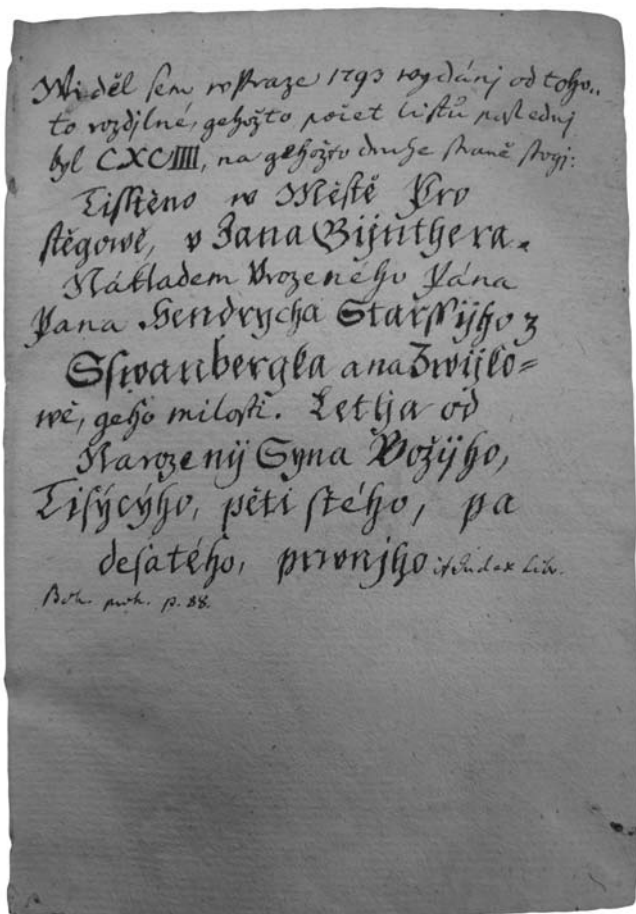 Widěl sem w Praze 1793 wydánj od toho-
to rozdjlné, gehožto počet listů poslednj
byl CXCIIII, na gehožto druhé straně stogj:
Tisſtěno w Městě Pro
ſtěgowě, v Jana Gijnthera.
Nákladem Vrozeného Pána
Pana Hendrycha Starſſijho z
Sſwanbergka a na Zwijko=
wě, geho miloſti. Letha od
Narozenij Syna Božijho,
Tiſýcýho, pěti ſtého, pa
deſátého, prwnjho it. Index Lib.
Boh. proh. p. 88.